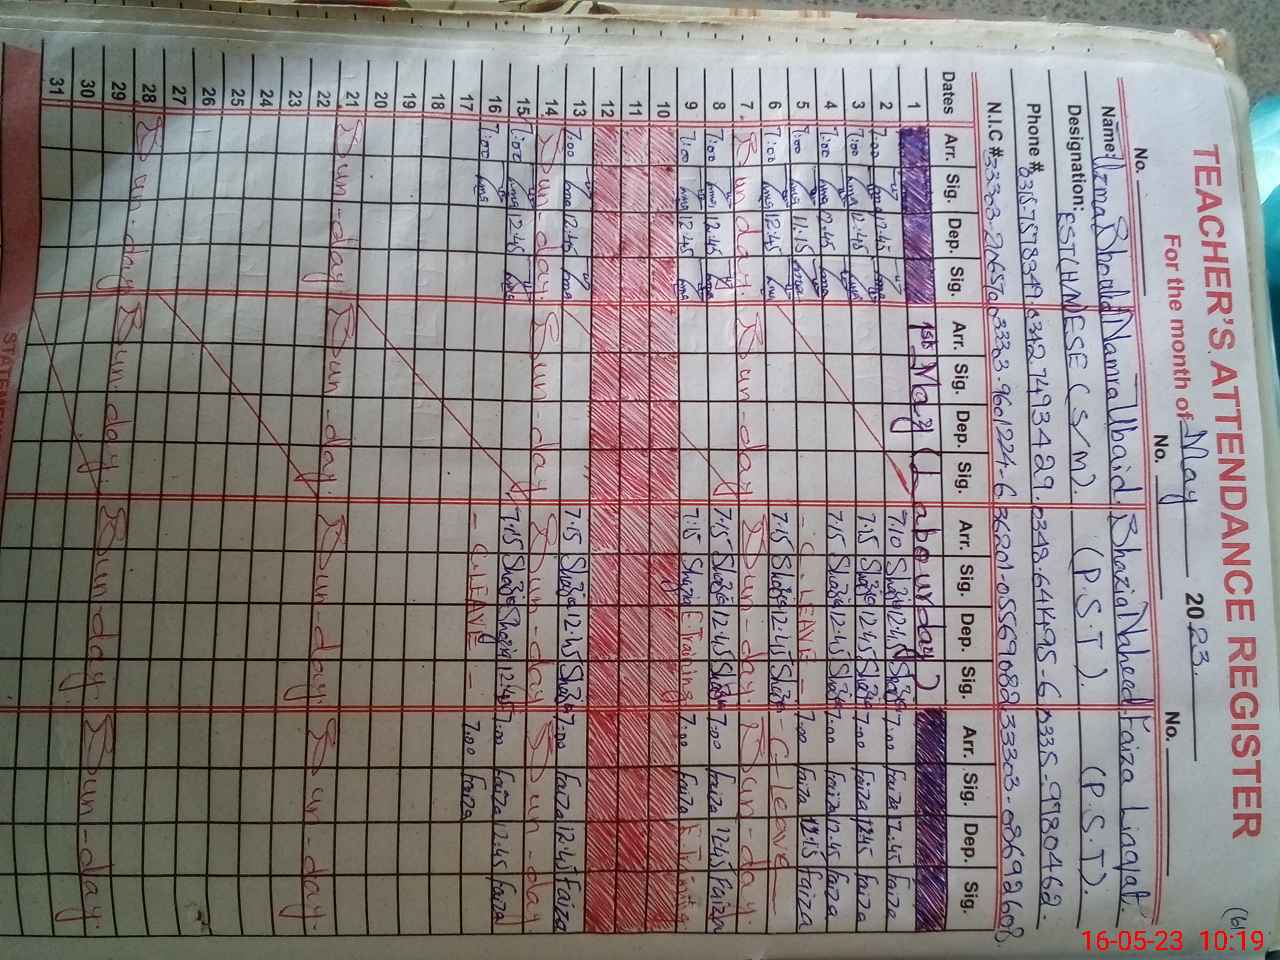 (61)
TEACHER'S ATTENDANCE REGISTER
For the month of May 2023.
No. No. No.
Name: Uzma Shahid Namra Ubaid. Shazia Naheed. Faiza Liaqat.
Designation: EST(HM) ESE (S/M). (P.S.T). (P.S.T).
Phone # 03157578349. 0342.7493429. 0335-9980462.
N.I.C #
Dates Arr. Sig. Dep. Sig. Arr. Sig. Dep. Sig. Arr. Sig. Dep. Sig. Arr. Sig. Dep. Sig.
1 1st May (Labour day)
2 7:00 12:45 7.10 Shazia 12.45 Shazia 7.00 Faiza 12.45 Faiza
3 7:00 12:45 7.15 Shazia 12.45 Shazia 7.00 Faiza 1245 Faiza
4 7:00 12:45 7.15 Shazia 12.45 Shazia 7.00 Faiza 12.45 Faiza
5 7:00 11:15 - C. LEAVE - 7.00 Faiza Faiza
6 7:00 12:45 7.15 Shazia 12.45 Shazia - C-Leave -
7. Sun-day. Sun-day Sun-day. Sun-day.
8 7:00 12:45 7.15 Shazia 12.45 Shazia 7:00 Faiza 12.45 Faiza
9 7:00 12:45 7:15 Shazia E.Training 7.00 Faiza
10
11
12
13 7:00 12.45 7.15 Shazia 12.45 Shazia 7.00 Faiza 12.45 Faiza
14 Sun-day. Sun-day Sun-day Sun-day
15 7:00 12:45 7.15 Shazia Shazia 12.45 7.00 Faiza 12.45 Faiza
16 7:00 - C. LEAVE - 7.00 Faiza
17
18
19
20
21 Sun-day Sun-day. Sun-day. Sun-day.
22
23
24
25
26
27
28 Sun-day Sun-day. Sunday. Sun-day.
29
30
31
16-05-23 10:19